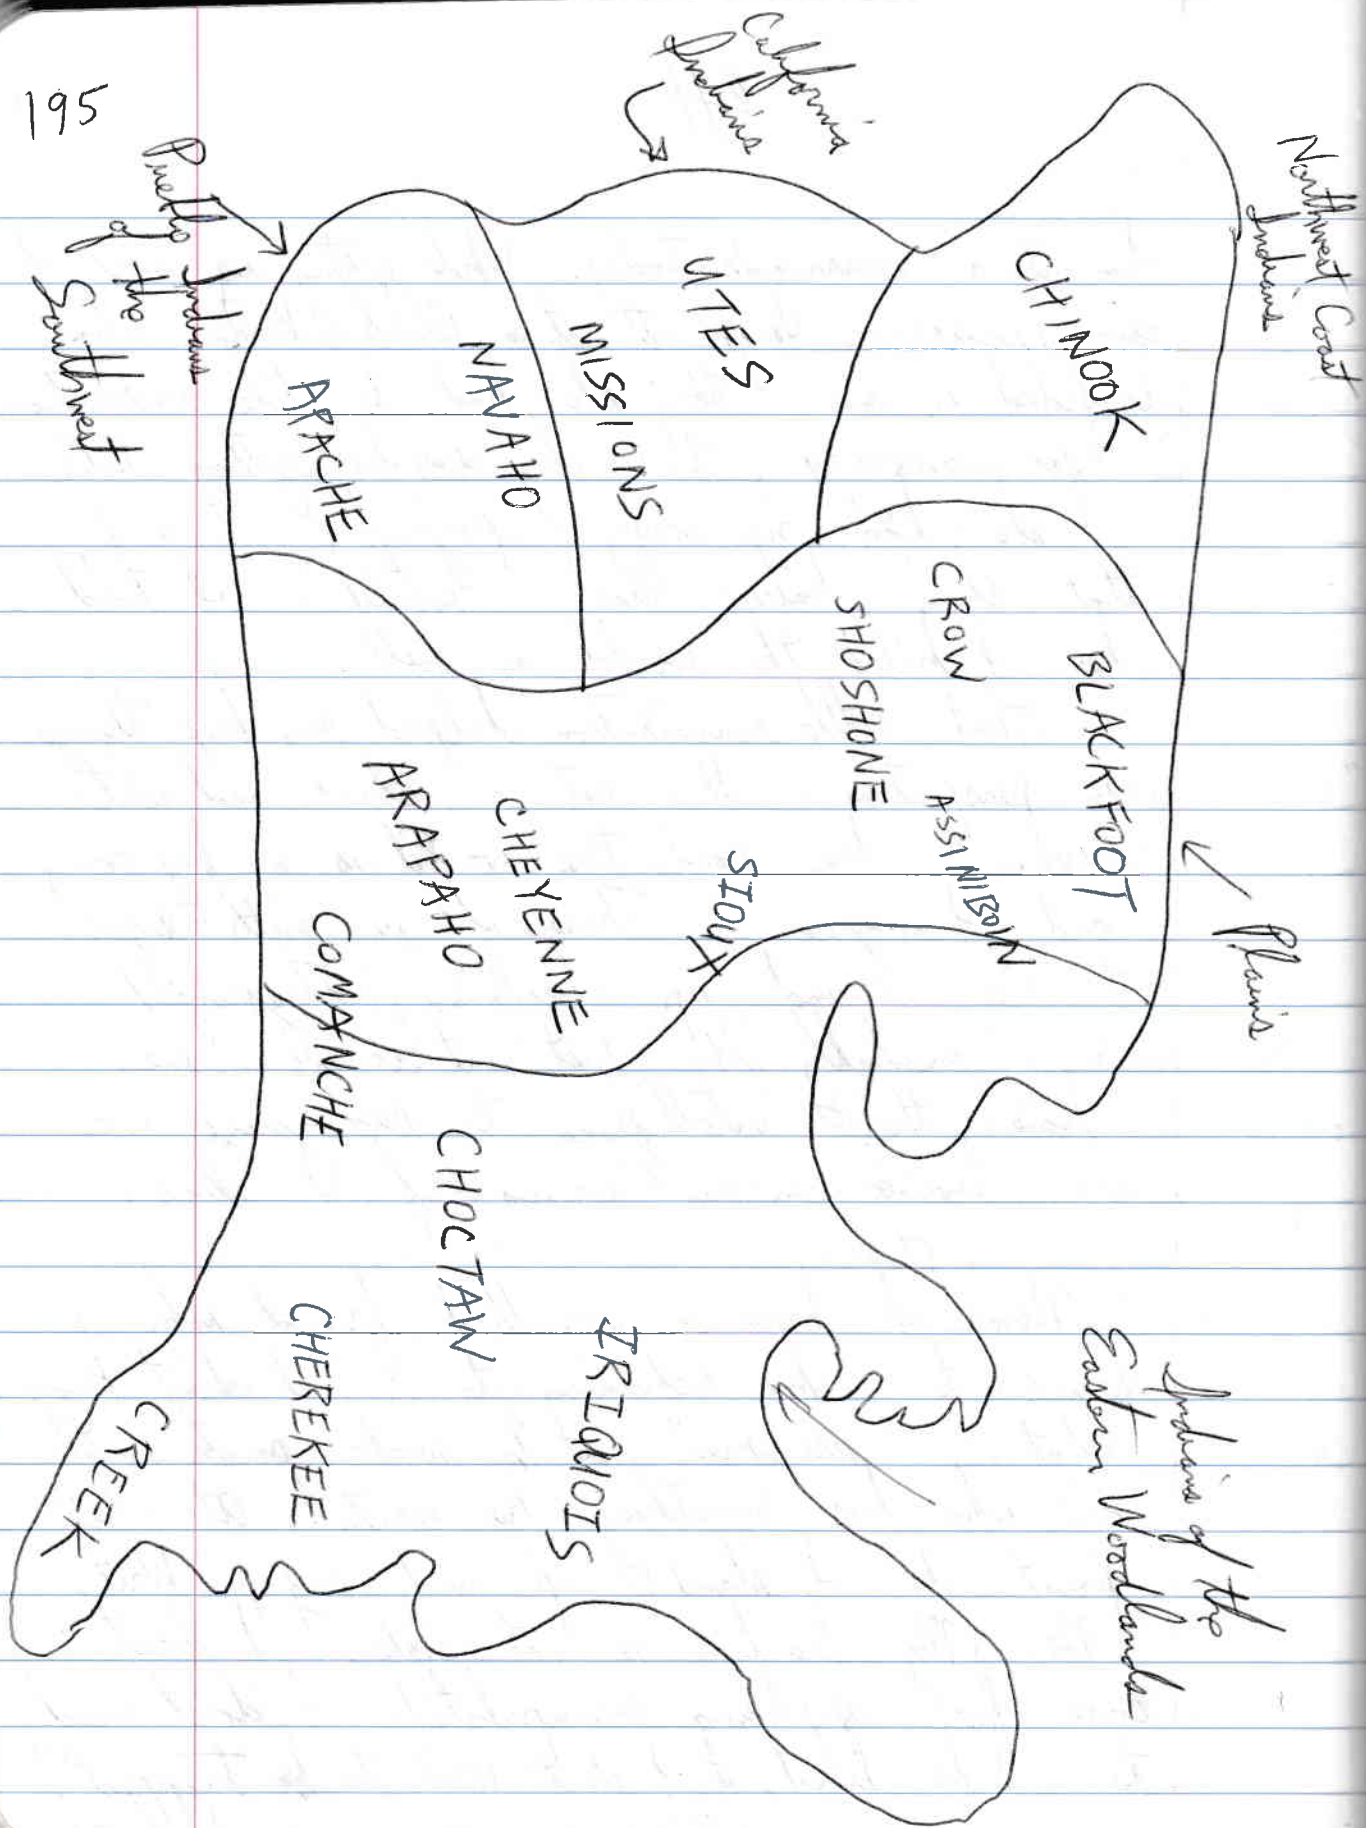 195
Northwest Coast
Indians
California
Indians
Pueblo Indians
of the
Southwest
Plains
Indians of the
Eastern Woodlands
CHINOOK
UTES
MISSIONS
NAVAHO
APACHE
BLACKFOOT
CROW
ASSINIBOIN
SHOSHONE
SIOUX
CHEYENNE
ARAPAHO
COMANCHE
IRIQUOIS
CHOCTAW
CHEREKEE
CREEK